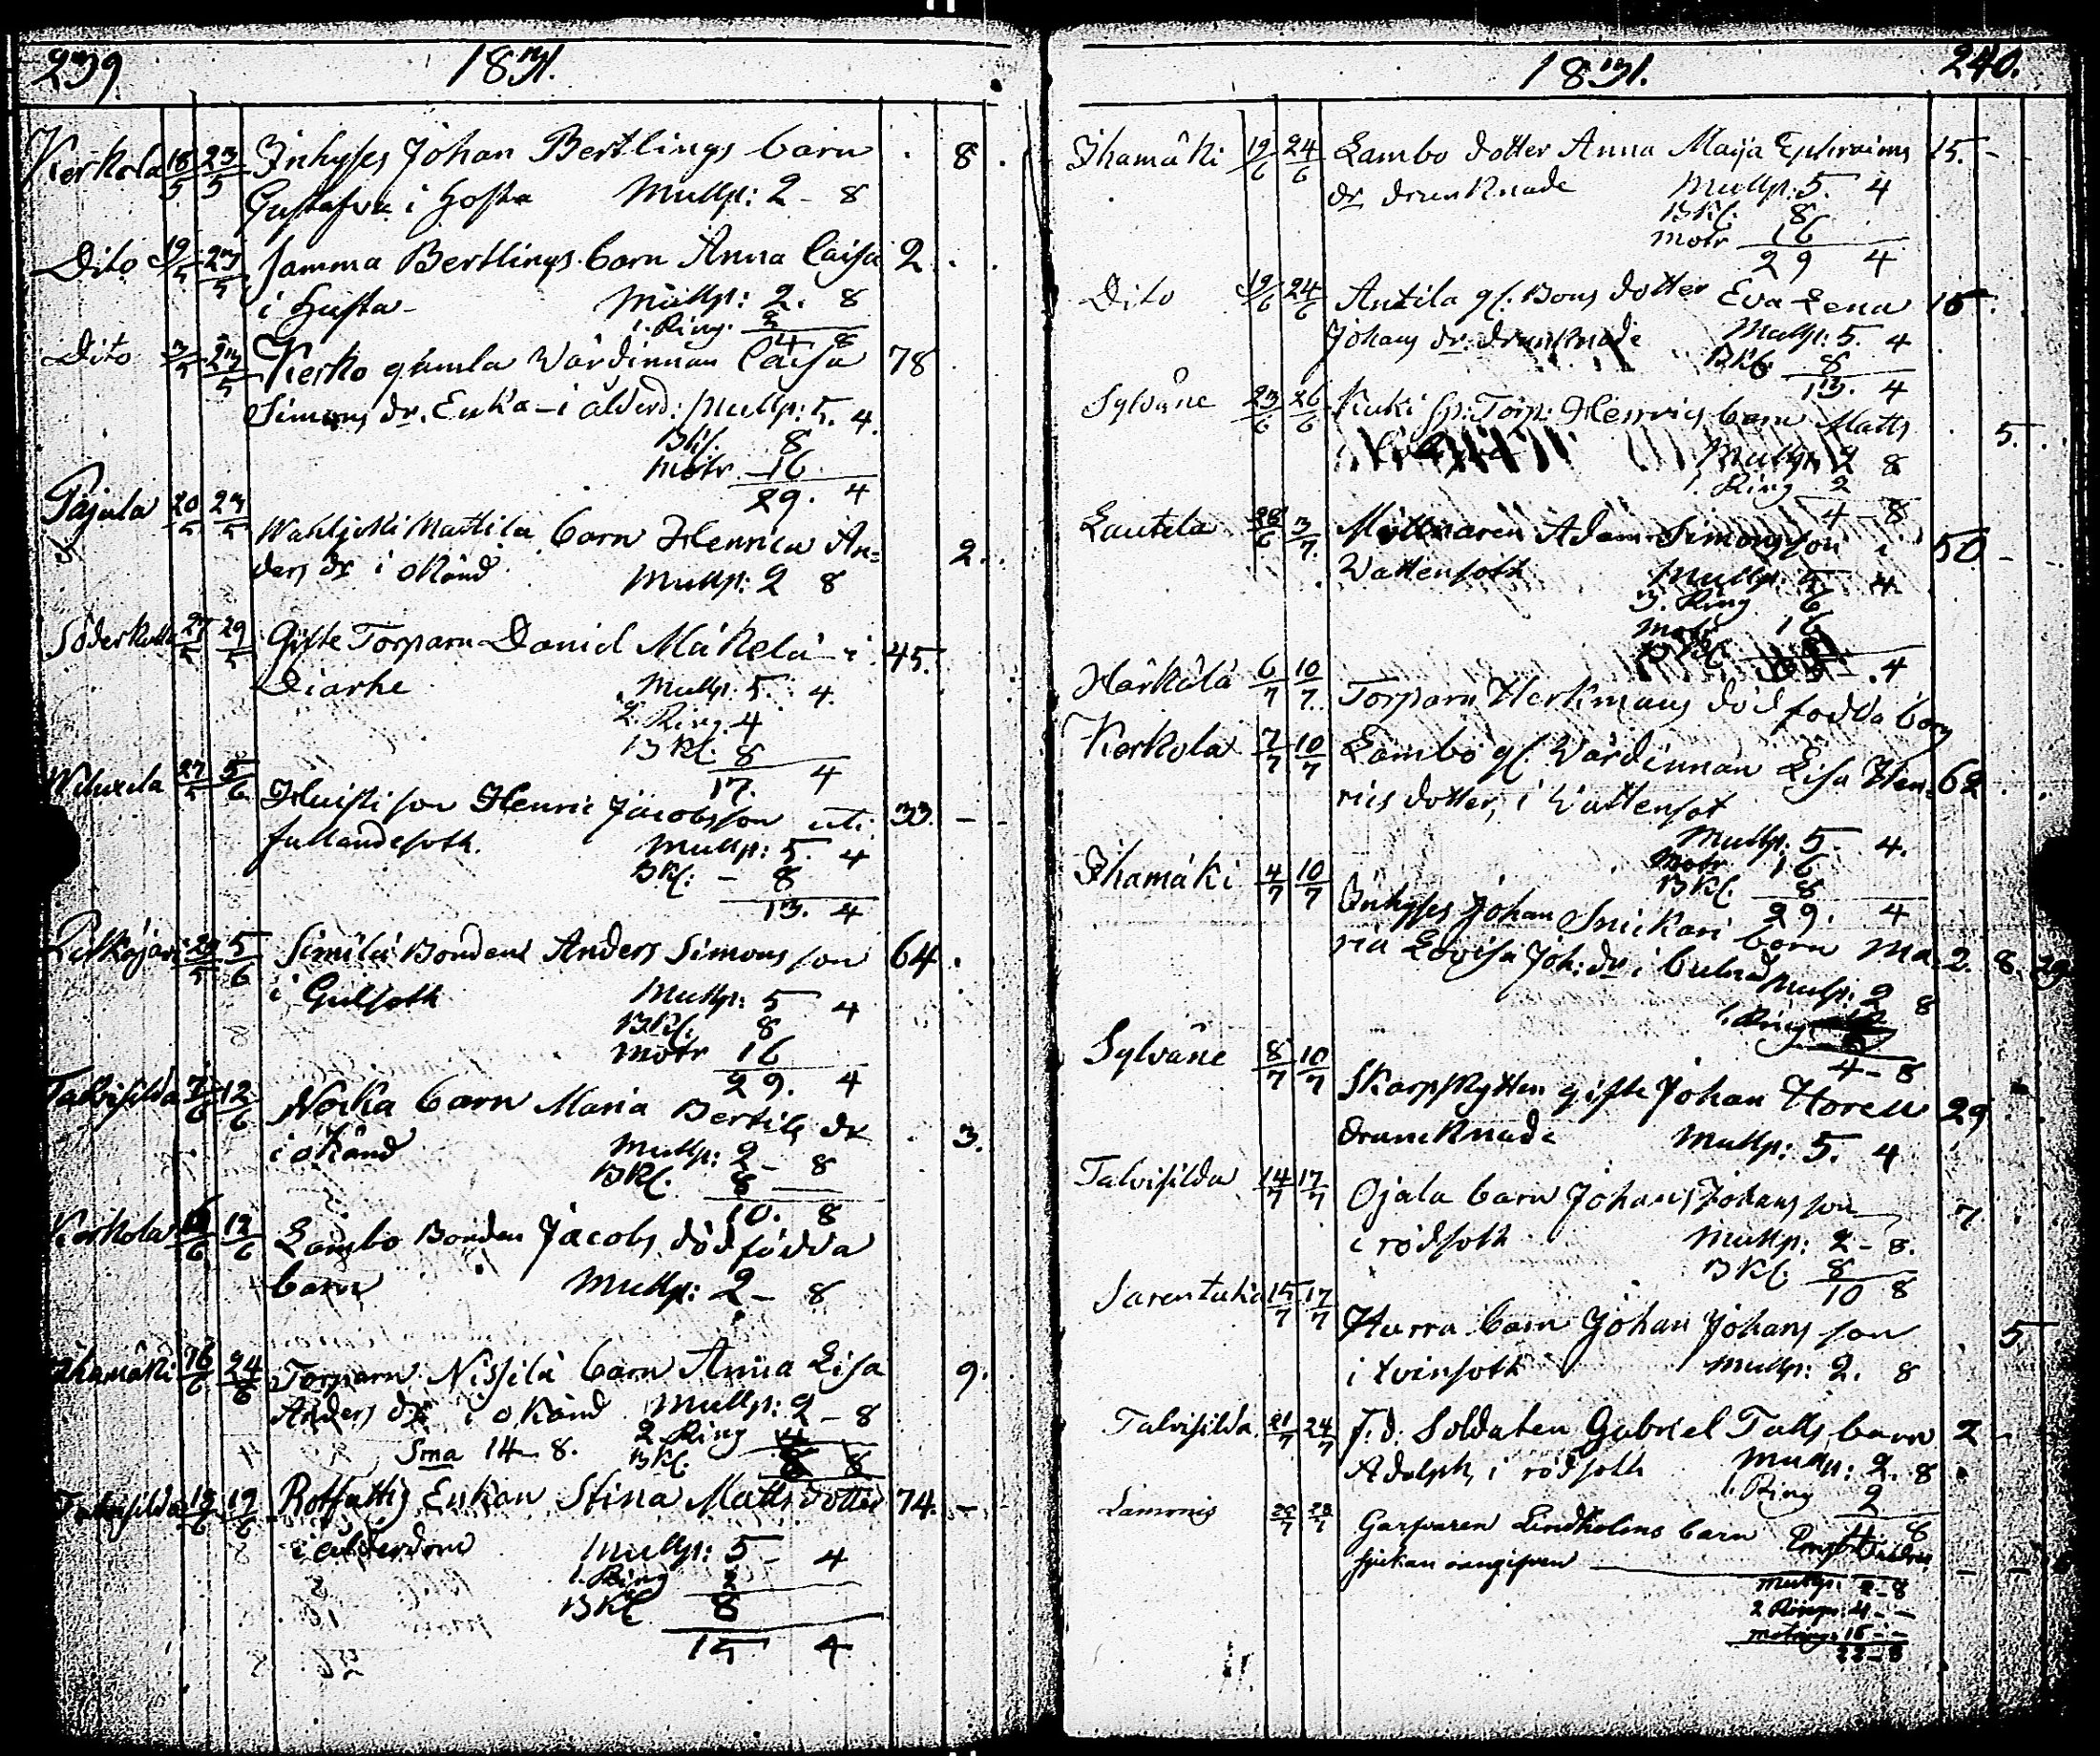 239. 1831.
Kerkola 18/5 23/5 Inhyses Johan Bertlings barn . 8.
Gustafva i hosta Mullp: 2 - 8
Dito 19/5 23/5 samma Bertlings barn Anna Caisa 2. .
i husta - Mullp: 2. 8
1. Ring. 2
4 8
Dito 3/5 23/5 Kerko gamla Wärdinnan Caisa 78
Simons dr. Enka - i ålderd: Mullp: 5. 4.
BKl. 8
motr. 16
29. 4
Pajula 20/5 23/5 Wahljoki Mattila barn Henrica An= 2.
ders dr i okänd Mullp: 2 8
Söderkulla 27/5 29/5 Gifte Torparn Daniel Mäkelä i 45.
Diarhe Mullp. 5. 4.
2. Ring. 4
BKl. 8
17. 4
27/5 5/6 Huisti son Henric Jacobsson uti 33. -
fallandesoth. Mullp: 5. 4
BKl: - 8
13. 4
29/5 5/6 Similä Bonden Anders Simons son 64.
i Gulsoth Mullp: 5 4
BKl. 8
motr 16
29. 4
Talvisilda 7/6 12/6 Nocka barn Maria Bertils dr . 3.
i okänd Mullp: 2 - 8
BKl. 8
10. 8
Kerkola 12/6 Lambo Bonden Jacobs dödfödda
barn Mullp: 2 - 8
Ihamäki 16/6 24/6 Torparn Nissilä barn Anna Lisa 9.
Anders dr i okänd Mullp: 2 - 8
2 Ring 4
Sma 14 - 8. BKl. 8 8
Talvisilda 19/6 Rotfattig Enkan Stina Matts dotter 74. -
i ålderdom Mullp: 5 - 4
1. Ring 2
BKl 8
15 4
1831. 240.
Ihamäki 19/6 24/6 Lambo dotter Anna Maija Ephraims 15. -
dr drunknade Mullp: 5. 4
BKl. 8
motr 16
29 4
Dito 19/6 24/6 Antila gl. Bons dotter Eva Lena 15
Johans dr. drunknade Mullp: 5. 4
BKl. 8
13. 4
Sylväne 23/6 26/6 Kuki sp: Torp: Henrics barn Matts 5.
Mullp. 2 8
1. Ring 2
4 - 8
Lautela 28/6 3/7 Möllnaren Adam Simonsson i 50 -
Wattensoth Mullp: 5 4.
3. Ring 6
motr 16
BKl.
. 4
Härkälä 6/7 10/7 Torparn Herkmans dödfödda barn
Kerkola 7/7 10/7 Lambo gl. Wärdinnan Lisa Hen= 62
rics dotter, i Wattensot
Mullp. 5 4.
motr 16
BKl 8
29. 4
Ihamäki 4/7 10/7 Inhyses Johan Snickari barn Ma= 2. 8. 29.
ria Lovisa Joh: dr i bulnad Mullp: 2 8
1. Ring
4 - 8
Sylväne 8/7 10/7 Skarpskytten gifte Johan Horell 29
drunknade Mullp: 5. 4
Talvisilda 14/7 17/7 Ojala barn Johans Johans son 7.
i rödsoth Mullp: 2 - 8.
BKl. 8
10 8
Sarentaka 15/7 17/7 Hurra barn Johan Johans son 5
i tvinsoth Mullp: 2. 8
Talvisilda 21/7 24/7 F: d: Soldaten Gabriel Talls barn 2 -
Adolph, i rödsoth Mullp: 2. 8
1. Ring 2
4 8
Lamonis Garfvaren Lindholms barn
sjukan oangifven - - -
Mullp: 2 - 8
2 Ringn: 4 - -
motring: 16 - -
22 - 8